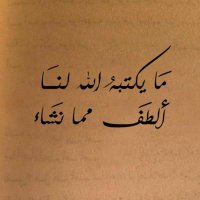 مَا يكتبهُ الله لنَا
ألطفَ مما نشَاء